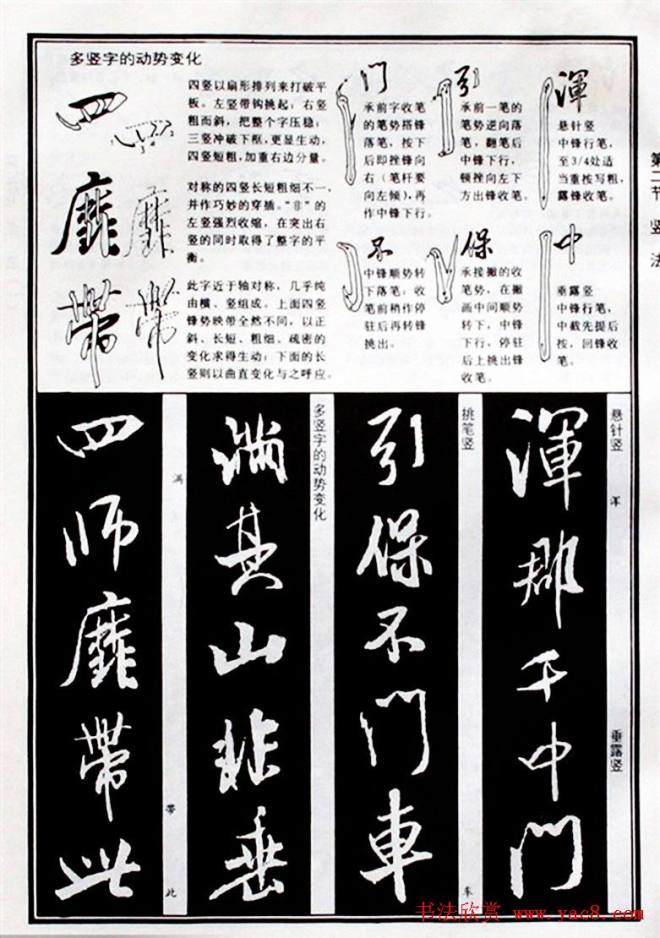 第二节 竖法
多竖字的动势变化
四
四竖以扇形排列来打破平
板。左竖带钩挑起;右竖
粗而斜,把整个字压稳;
三竖冲破下框,更显生动,
四竖短粗,加重右边分量。
靡
对称的四竖长短粗细不一,
并作巧妙的穿插。“非”的
左竖强烈收缩,在突出右
竖的同时取得了整字的平
衡。
带
此字近于轴对称,几乎纯
由横、竖组成。上面四竖
锋势映带全然不同,以正
斜、长短、粗细、疏密的
变化求得生动;下面的长
竖则以曲直变化与之呼应。
门
承前字收笔
的笔势搭锋
落笔,按下
后即挫锋向
右(笔杆要
向左倾),再
作中锋下行。
引
承前一笔的
笔势逆向落
笔,翻笔后
中锋下行,
顿挫向左下
方出锋收笔。
渾
悬针竖
中锋行笔,
至3/4处适
当重按写粗,
露锋收笔。
不
中锋顺势转
下落笔;收
笔前稍作停
驻后再转锋
挑出。
保
承接撇的收
笔势,在撇
画中间顺势
转下,中锋
下行,停驻
后上挑出锋
收笔。
中
垂露竖
中锋行笔,
中截先提后
按,回锋收
笔。
悬针竖
渾
郡
千
垂露竖
中
門
挑笔竖
引
保
不
門
車
车
多竖字的动势变化
满
其
山
非
垂
四
师
靡
帶
此
带
此
书法欣赏 www.yac8.com